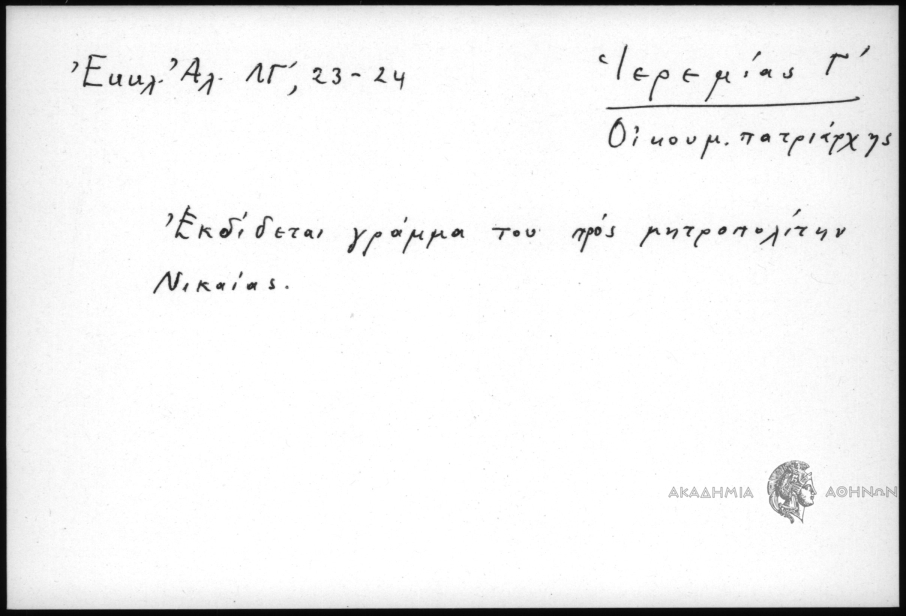 Ἐκκλ. Ἀλ. ΛΓ', 23-24
Ἱερεμίας Γ'
Οἰκουμ. πατριάρχης
Ἐκδίδεται γράμμα του πρός μητροπολίτην
Νικαίας.
ΑΚΑΔΗΜΙΑ ΑΘΗΝΩΝ